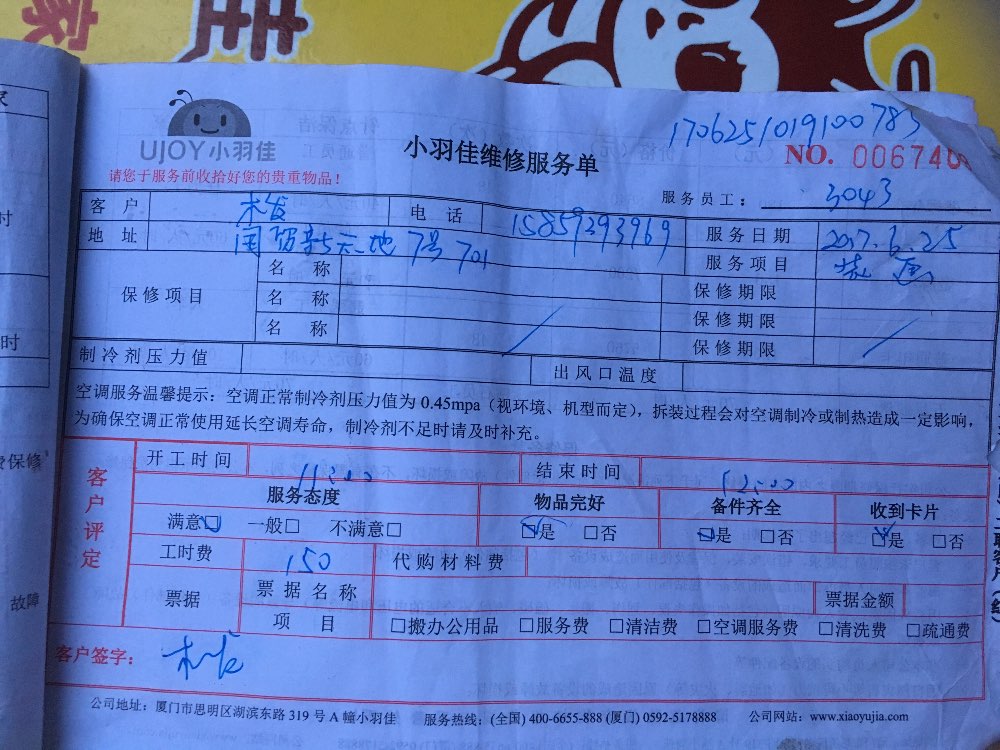 家 佳
1706251019100783
UJOY小羽佳
小羽佳维修服务单
NO. 006740
请您于服务前收拾好您的贵重物品！
服务员工： 3043
客户 电话 15859393969 服务日期 2017.6.25
地址 国贸新天地7号701 服务项目
保修项目 名称 保修期限
名称 保修期限
名称 保修期限
制冷剂压力值 出风口温度
空调服务温馨提示：空调正常制冷剂压力值为 0.45mpa（视环境、机型而定），拆装过程会对空调制冷或制热造成一定影响，
为确保空调正常使用延长空调寿命，制冷剂不足时请及时补充。
客户评定
开工时间 11:00 结束时间 12:00
服务态度 物品完好 备件齐全 收到卡片
满意□ 一般□ 不满意□ □是 □否 □是 □否 □是 □否
工时费 150 代购材料费
票据 票据名称 票据金额
项目 □搬办公用品 □服务费 □清洁费 □空调服务费 □清洗费 □疏通费
客户签字：
公司地址：厦门市思明区湖滨东路 319 号 A 幢小羽佳 服务热线：(全国) 400-6655-888 (厦门) 0592-5178888 公司网站：www.xiaoyujia.com
时
时
保修
故障